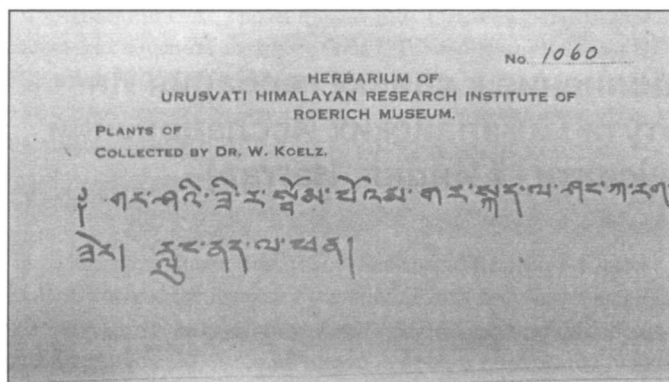 No. 1060
HERBARIUM OF
URUSVATI HIMALAYAN RESEARCH INSTITUTE OF
ROERICH MUSEUM.
PLANTS OF
COLLECTED BY DR. W. KOELZ.
གར་ཤའི་ཟི་ར་སྦོམ་པོའམ་གར་སྐད་ལ་ཤང་ཀ་རག་
ཟེར། རླུང་ནད་ལ་ཕན།